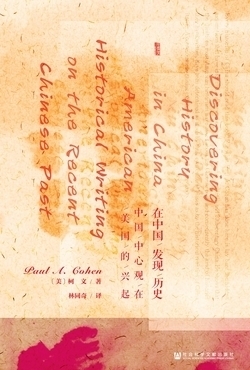 Discovering
History
in China
American
Historical Writing
on the Recent
Chinese Past
在中国发现历史
中国中心观在
美国的兴起
Paul A. Cohen
[美] 柯文 著
林同奇 译
社会科学文献出版社